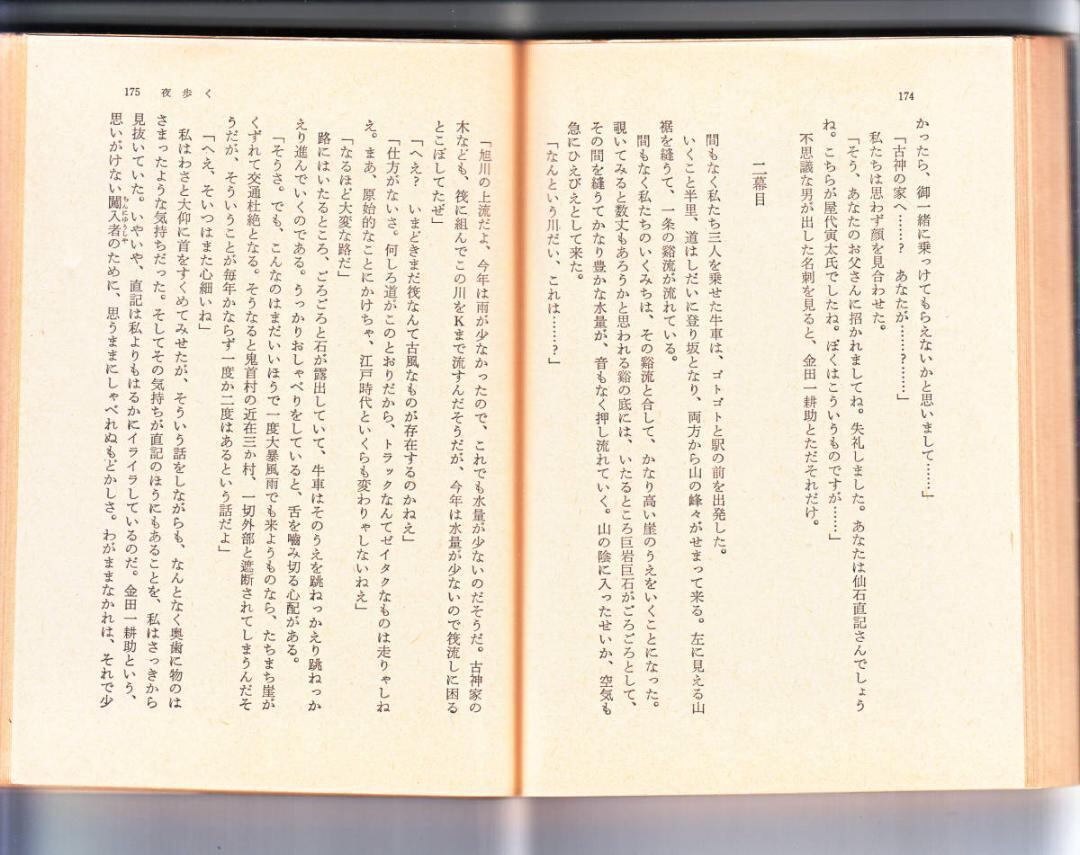 174
かったら、御一緒に乗っけてもらえないかと思いまして……」
「古神の家へ……? あなたが……?……」
私たちは思わず顔を見合わせた。
「そう、あなたのお父さんに招かれましてね。失礼しました。あなたは仙石直記さんでしょう
ね。こちらが屋代寅太氏でしたね。ぼくはこういうものですが……」
不思議な男が出した名刺を見ると、金田一耕助とただそれだけ。
二幕目
間もなく私たち三人を乗せた牛車は、ゴトゴトと駅の前を出発した。
いくこと半里、道はしだいに登り坂となり、両方から山の峰々がせまって来る。左に見える山
裾を縫うて、一条の谿流が流れている。
間もなく私たちのいくみちは、その谿流と合して、かなり高い崖のうえをいくことになった。
覗いてみると数丈もあろうかと思われる谿の底には、いたるところ巨岩巨石がごろごろとして、
その間を縫うてかなり豊かな水量が、音もなく押し流れていく。山の陰に入ったせいか、空気も
急にひえびえとして来た。
「なんという川だい、これは……?」
175 夜歩く
「旭川の上流だよ、今年は雨が少なかったので、これでも水量が少ないのだそうだ。古神家の
木なども、筏に組んでこの川をKまで流すんだそうだが、今年は水量が少ないので筏流しに困る
とこぼしてたぜ」
「へえ? いまどきまだ筏なんて古風なものが存在するのかねえ」
「仕方がないさ。何しろ道がこのとおりだから、トラックなんてゼイタクなものは走りゃしね
え。まあ、原始的なことにかけちゃ、江戸時代といくらも変わりゃしないねえ」
「なるほど大変な路だ」
路にはいたるところ、ごろごろと石が露出していて、牛車はそのうえを跳ねっかえり跳ねっか
えり進んでいくのである。うっかりおしゃべりをしていると、舌を嚙み切る心配がある。
「そうさ。でも、こんなのはまだいいほうで一度大暴風雨でも来ようものなら、たちまち崖が
くずれて交通杜絶となる。そうなると鬼首村の近在三か村、一切外部と遮断されてしまうんだそ
うだが、そういうことが毎年かならず一度か二度はあるという話だよ」
「へえ、そいつはまた心細いね」
私はわざと大仰に首をすくめてみせたが、そういう話をしながらも、なんとなく奥歯に物のは
さまったような気持ちだった。そしてその気持ちが直記のほうにもあることを、私はさっきから
見抜いていた。いやいや、直記は私よりもはるかにイライラしているのだ。金田一耕助という、
思いがけない闖入者のために、思うままにしゃべれぬもどかしさ。わがままなかれは、それで少